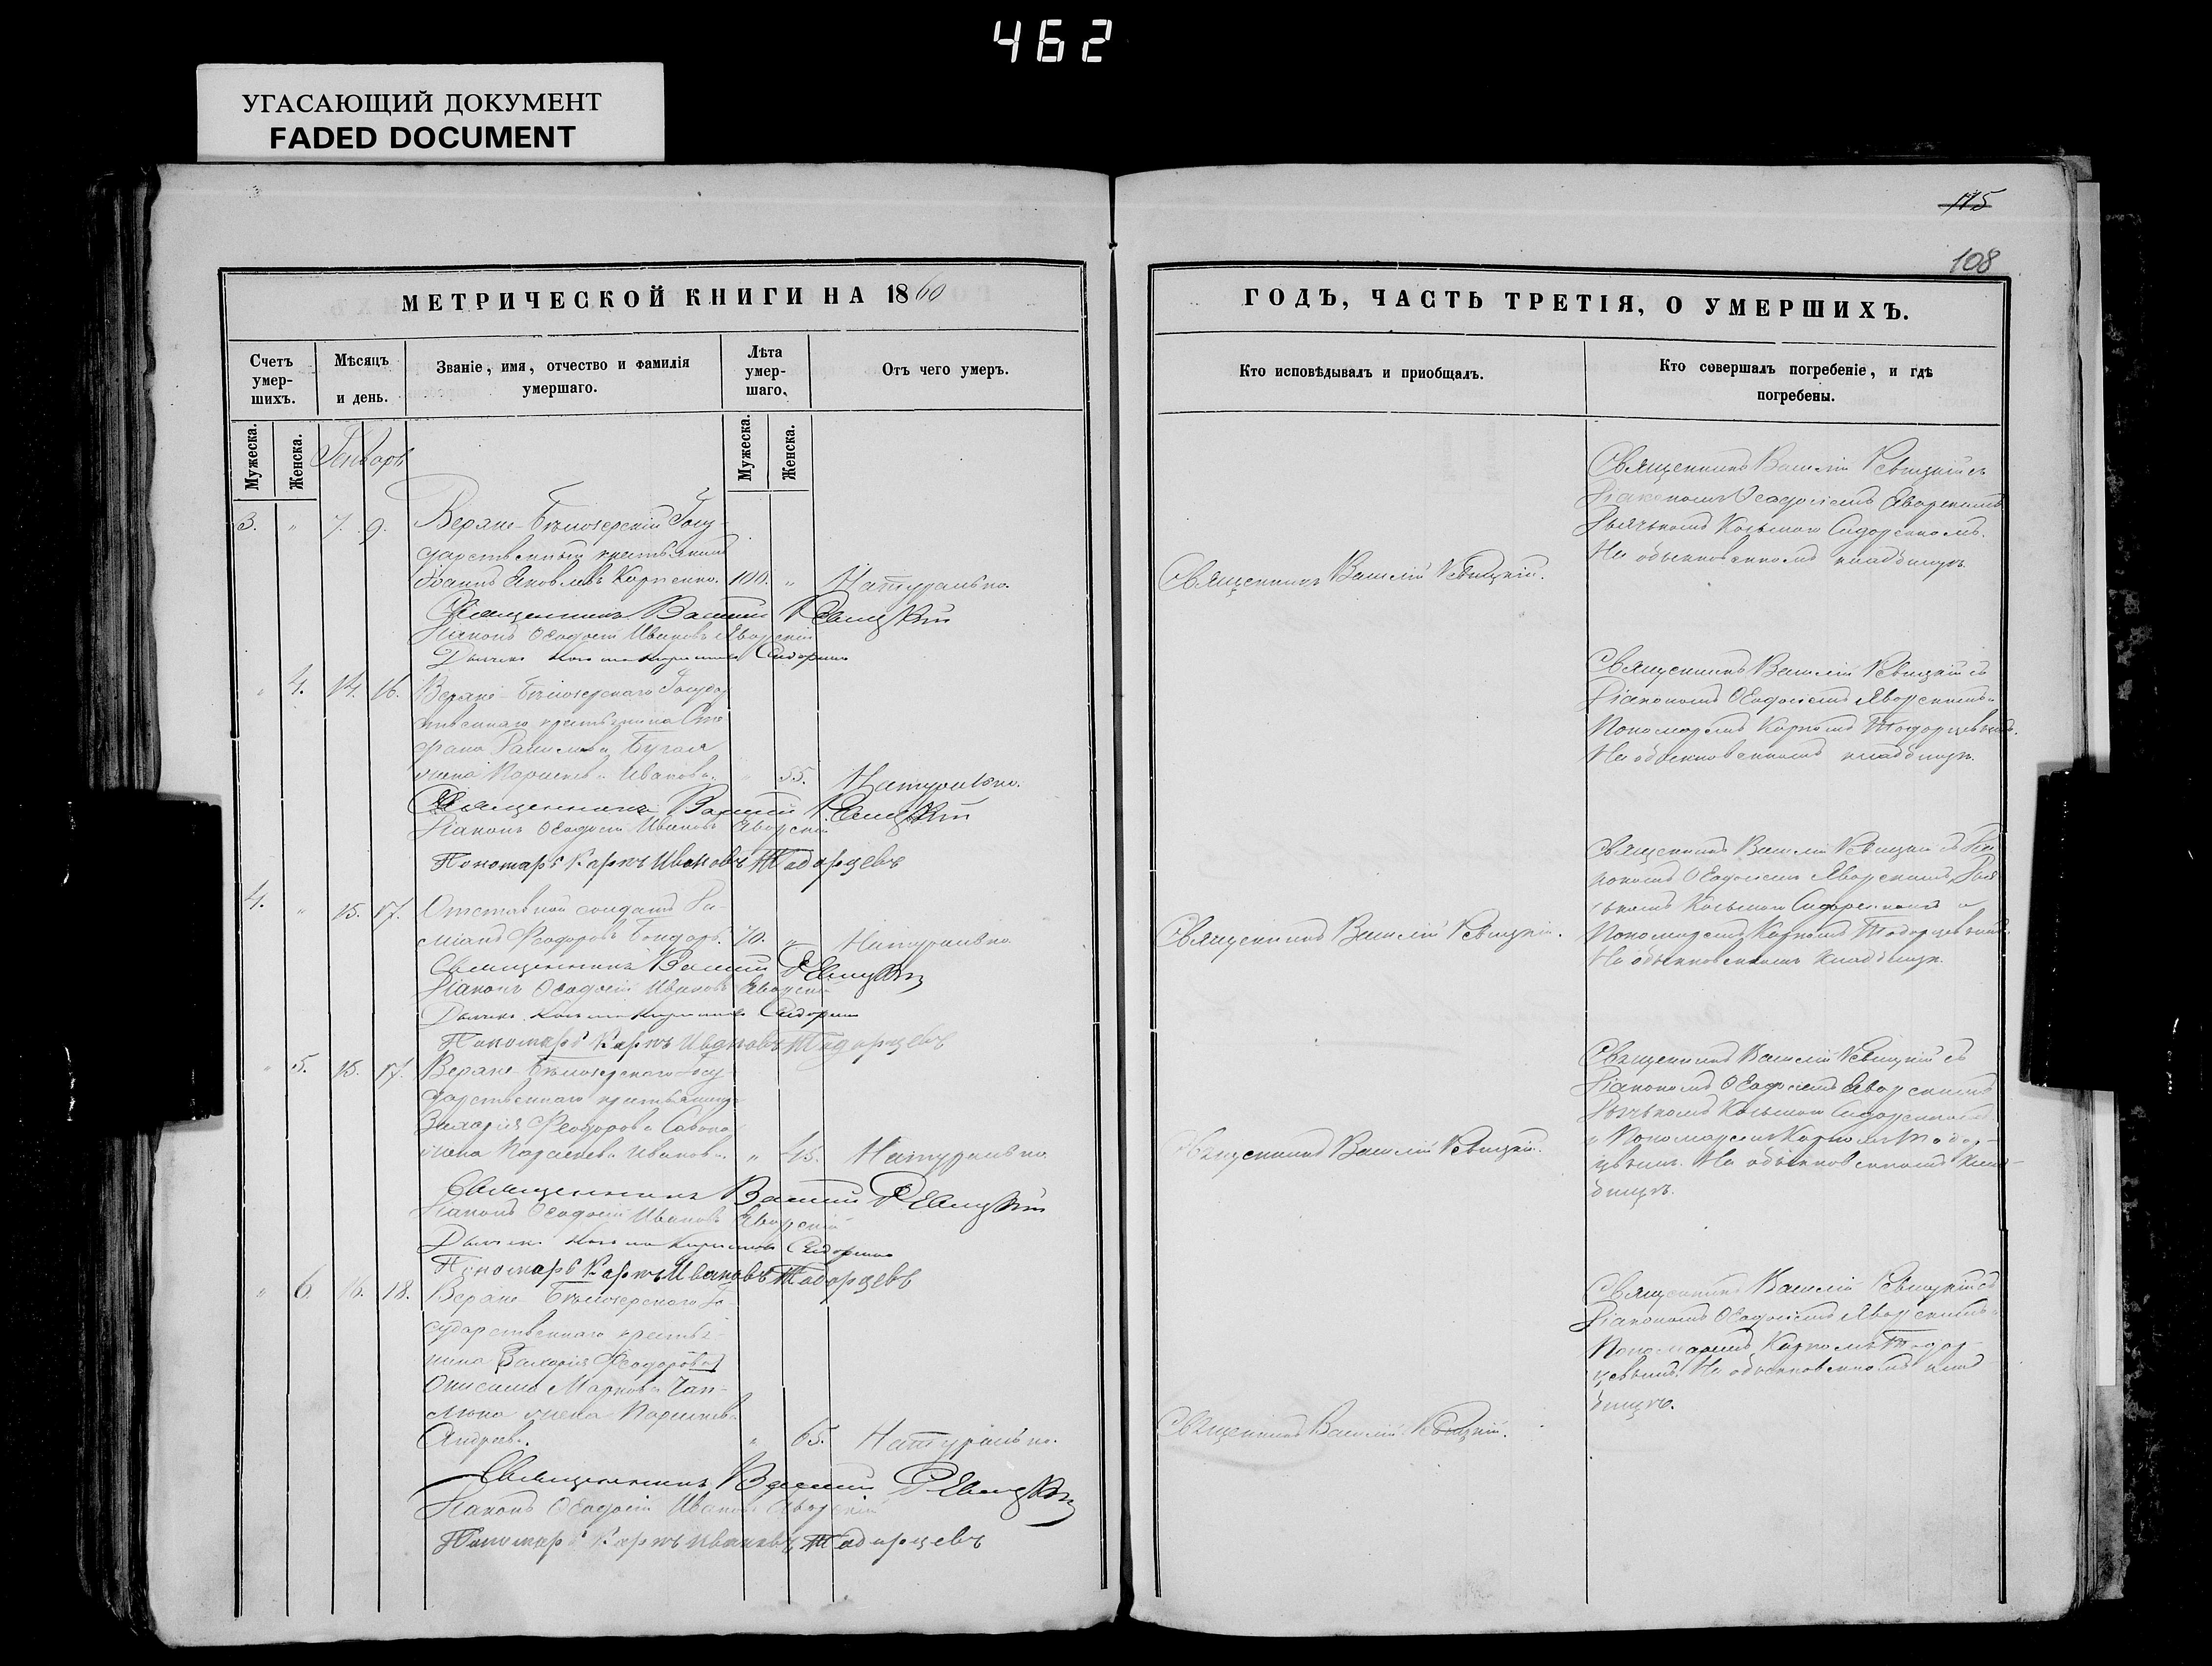 462
УГАСАЮЩИЙ ДОКУМЕНТ
FADED DOCUMENT
115
108
МЕТРИЧЕСКОЙ КНИГИ НА 1860
Счетъ умер-шихъ.
Мѣсяцъ и день.
Званіе, имя, отчество и фамилія умершаго.
Лѣта умер-шаго.
Отъ чего умеръ.
Мужеска.
Женска.
Мужеска.
Женска.
Генварь
3. " 7. 9. Верхне-Бѣлозерскій Госу-
дарственный крестьянинъ
Іоаннъ Яковлевъ Карпенко. 100. " Натурально.
Священникъ Василій Рѣвицкій
Діаконъ Ѳеодосій Ивановъ Яворскій
" 4. 14. 16. Верхне-Бѣлозерскаго Государ
ственнаго крестьянина Сте
фана Бугая
жена Ивановна. " 55. Натурально.
Священникъ Василій
Діаконъ Ѳеодосій Ивановъ Яворскій
Пономарь Карпъ Ивановъ Тодорцевъ
4. " 15. 17. Отставной солдатъ Да-
міанъ Ѳеодоровъ Бондарь. 70. " Натурально
Священникъ Василій
Діаконъ Ѳеодосій Ивановъ Яворскій
Пономарь Карпъ Ивановъ Тодорцевъ
" 5. 15. 17. Верхне-Бѣлозерскаго Госу
дарственнаго крестьянина
Захарія Ѳеодорова
жена Иванова. " 45. Натурально
Священникъ Василій
Діаконъ Ѳеодосій Ивановъ Яворскій
Пономарь Карпъ Ивановъ Тодорцевъ
" 6. 16. 18. Верхне-Бѣлозерскаго Го-
сударственнаго крестья-
нина Захарія Ѳеодорова
Онисима Маркова
жена
Андреева. " 65. Натурально.
Священникъ Василій
Діаконъ Ѳеодосій Ивановъ Яворскій
Пономарь Карпъ Ивановъ Тодорцевъ
ГОДЪ, ЧАСТЬ ТРЕТІЯ, О УМЕРШИХЪ.
Кто исповѣдывалъ и приобщалъ.
Кто совершалъ погребеніе, и гдѣ погребены.
Священникъ Василій Рѣвицкій съ
Діакономъ Ѳеодосіемъ Яворскимъ
Дьячкомъ Козьмою Сидоренкомъ.
На обыкновенномъ кладбищѣ.
Священникъ Василій Рѣвицкій.
Священникъ Василій Рѣвицкій съ
Діакономъ Ѳеодосіемъ Яворскимъ и
Пономаремъ Карпомъ Тодорцевымъ.
На обыкновенномъ кладбищѣ.
Священникъ Василій Рѣвицкій съ Діа
кономъ Ѳеодосіемъ Яворскимъ, Дья
чкомъ Козьмою Сидоренкомъ и
Пономаремъ Карпомъ Тодорцевымъ.
На обыкновенномъ кладбищѣ.
Священникъ Василій Рѣвицкій.
Священникъ Василій Рѣвицкій съ
Діакономъ Ѳеодосіемъ Яворскимъ
Дьячкомъ Козьмою Сидоренкомъ
и Пономаремъ Карпомъ Тодор-
цевымъ. На обыкновенномъ клад-
бищѣ.
Священникъ Василій Рѣвицкій.
Священникъ Василій Рѣвицкій съ
Діакономъ Ѳеодосіемъ Яворскимъ и
Пономаремъ Карпомъ Тодор-
цевымъ. На обыкновенномъ клад
бищѣ.
Священникъ Василій Рѣвицкій.